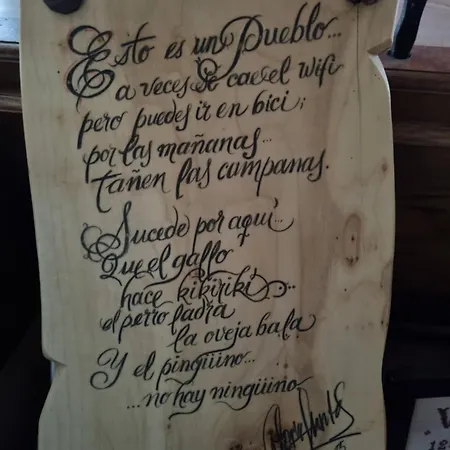 Esto es un Pueblo...
a veces se cae el wifi
pero puedes ir en bici;
por las mañanas...
tañen las campanas.
Sucede por aquí...
Que el gallo
hace kikiriki...
el perro ladra
la oveja bala
Y el pingüino...
...no hay ningüino